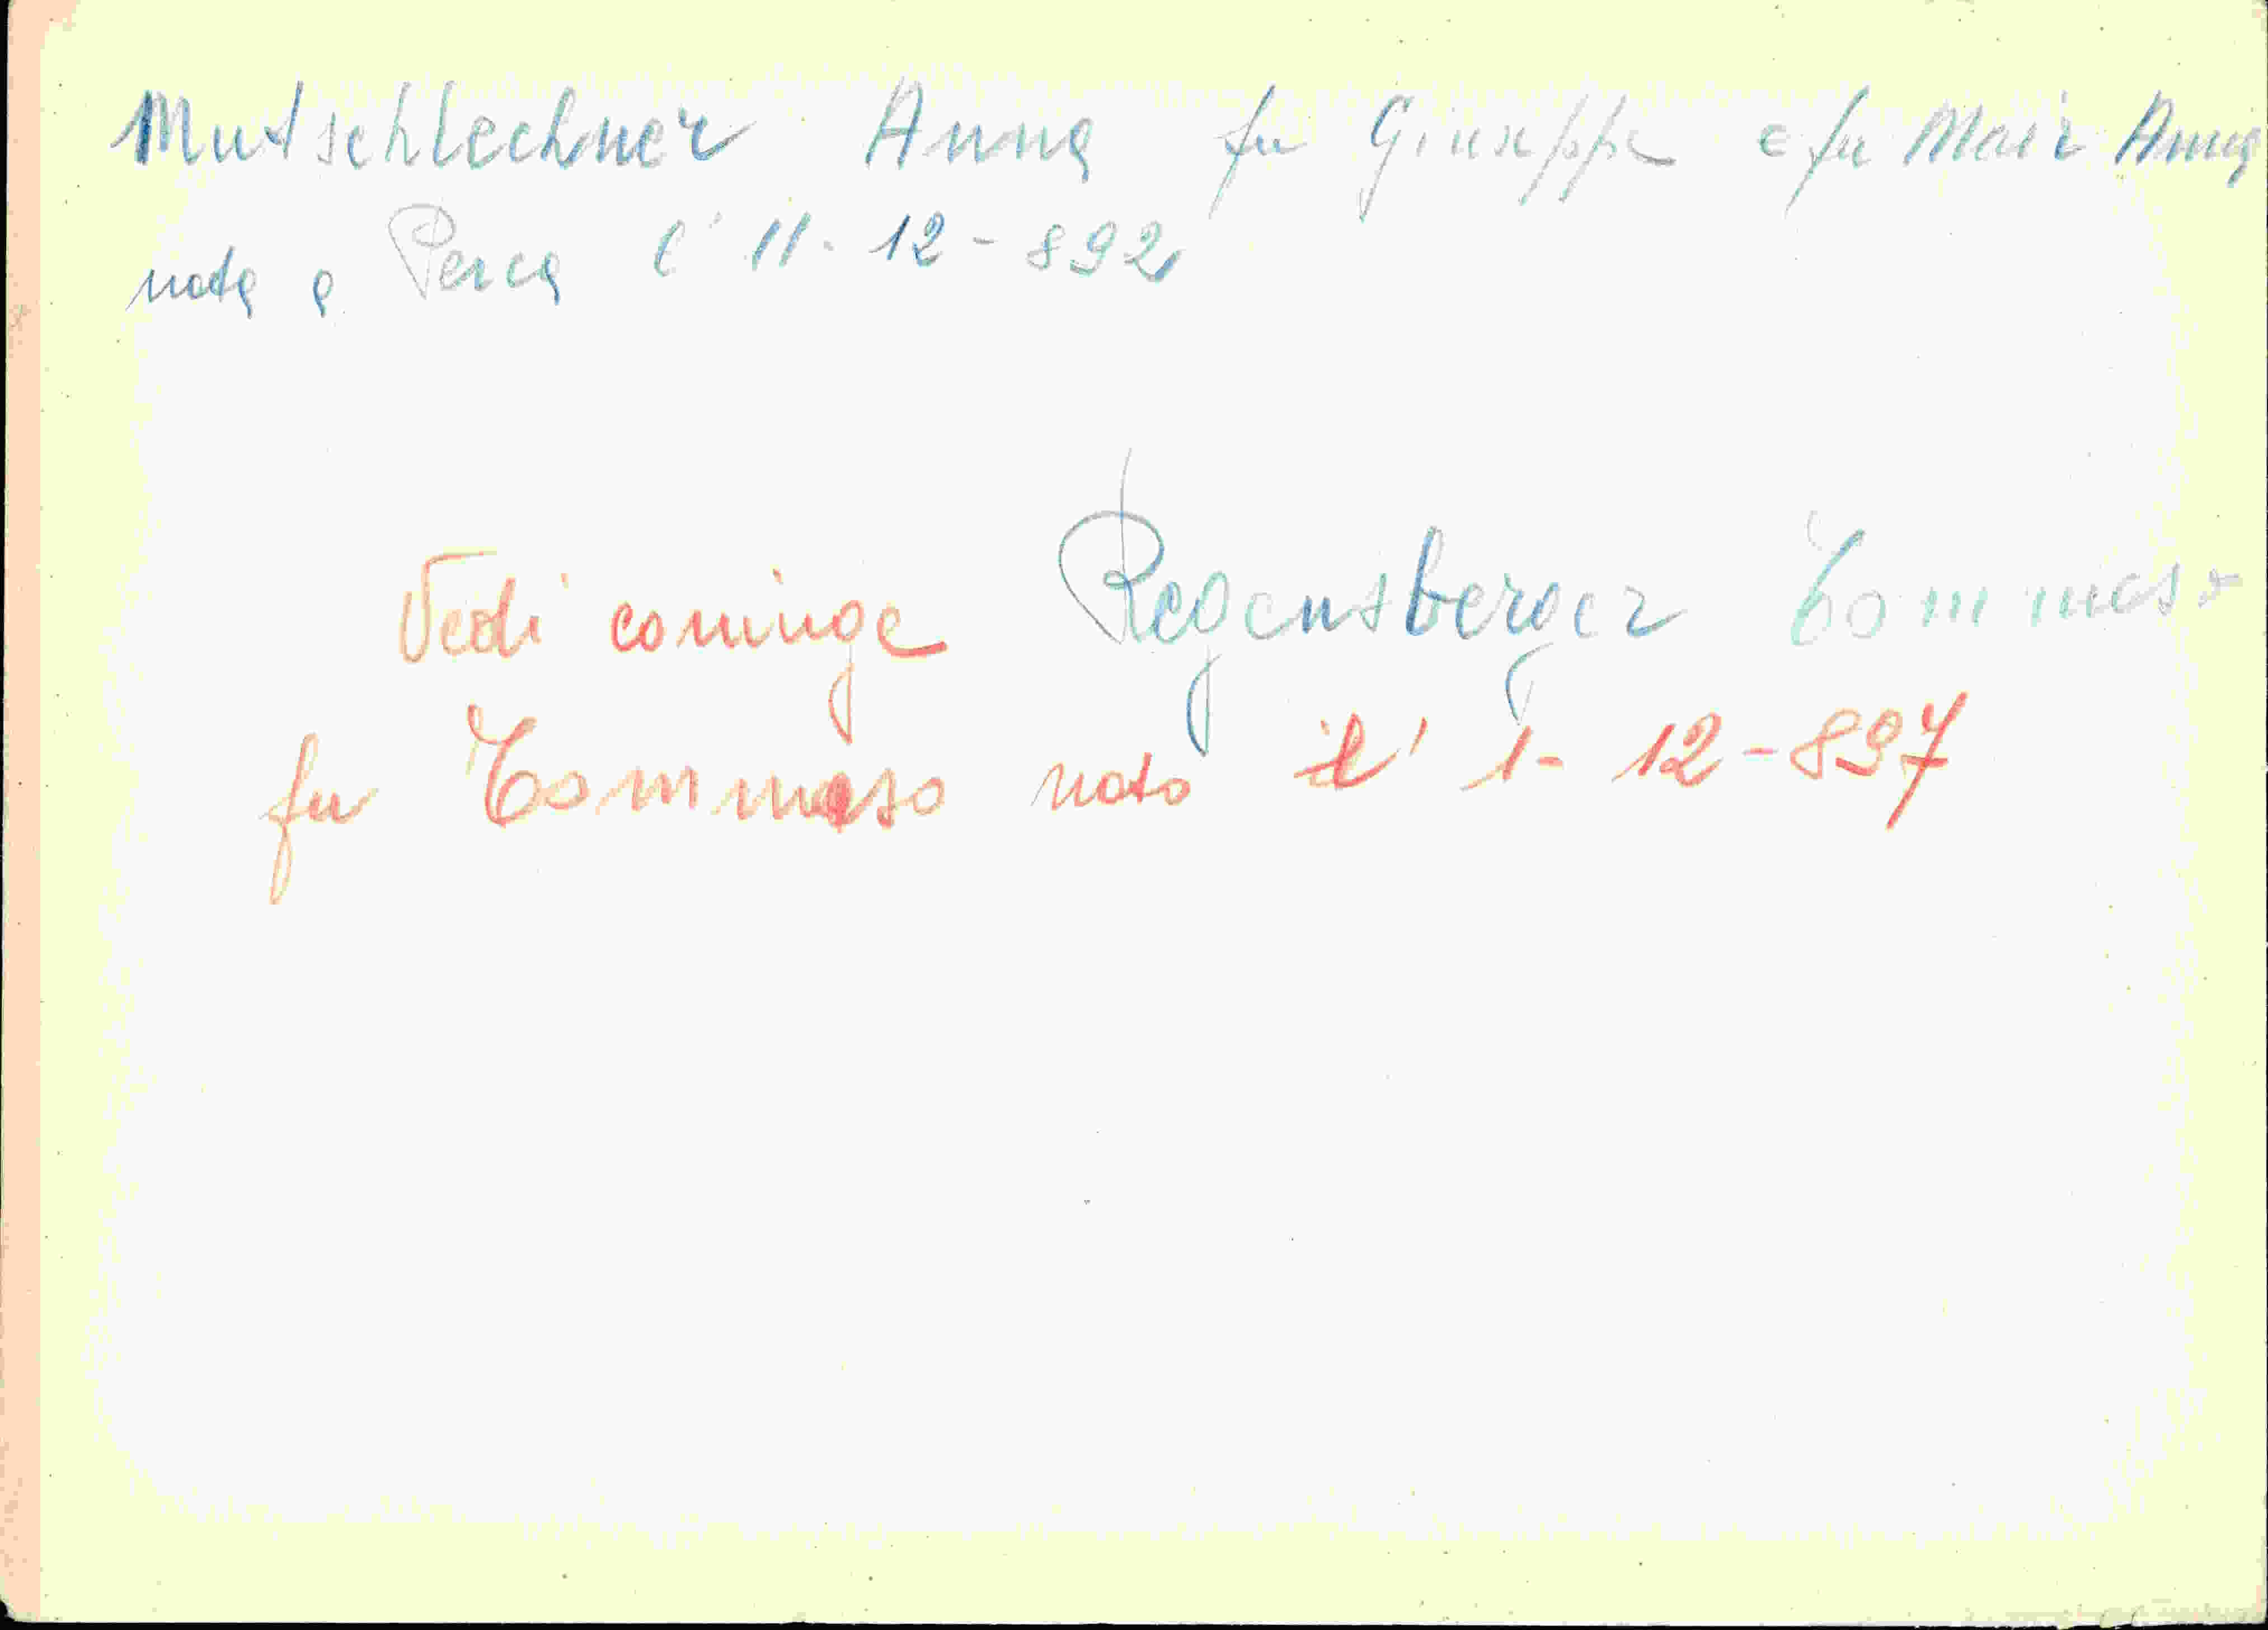 Mutschlechner Anna fu Giuseppe e fu Mair Anna
nata a Perca l' 11-12-892
Vedi coniuge Regensberger Tommaso
fu Tommaso nato l' 1-12-897